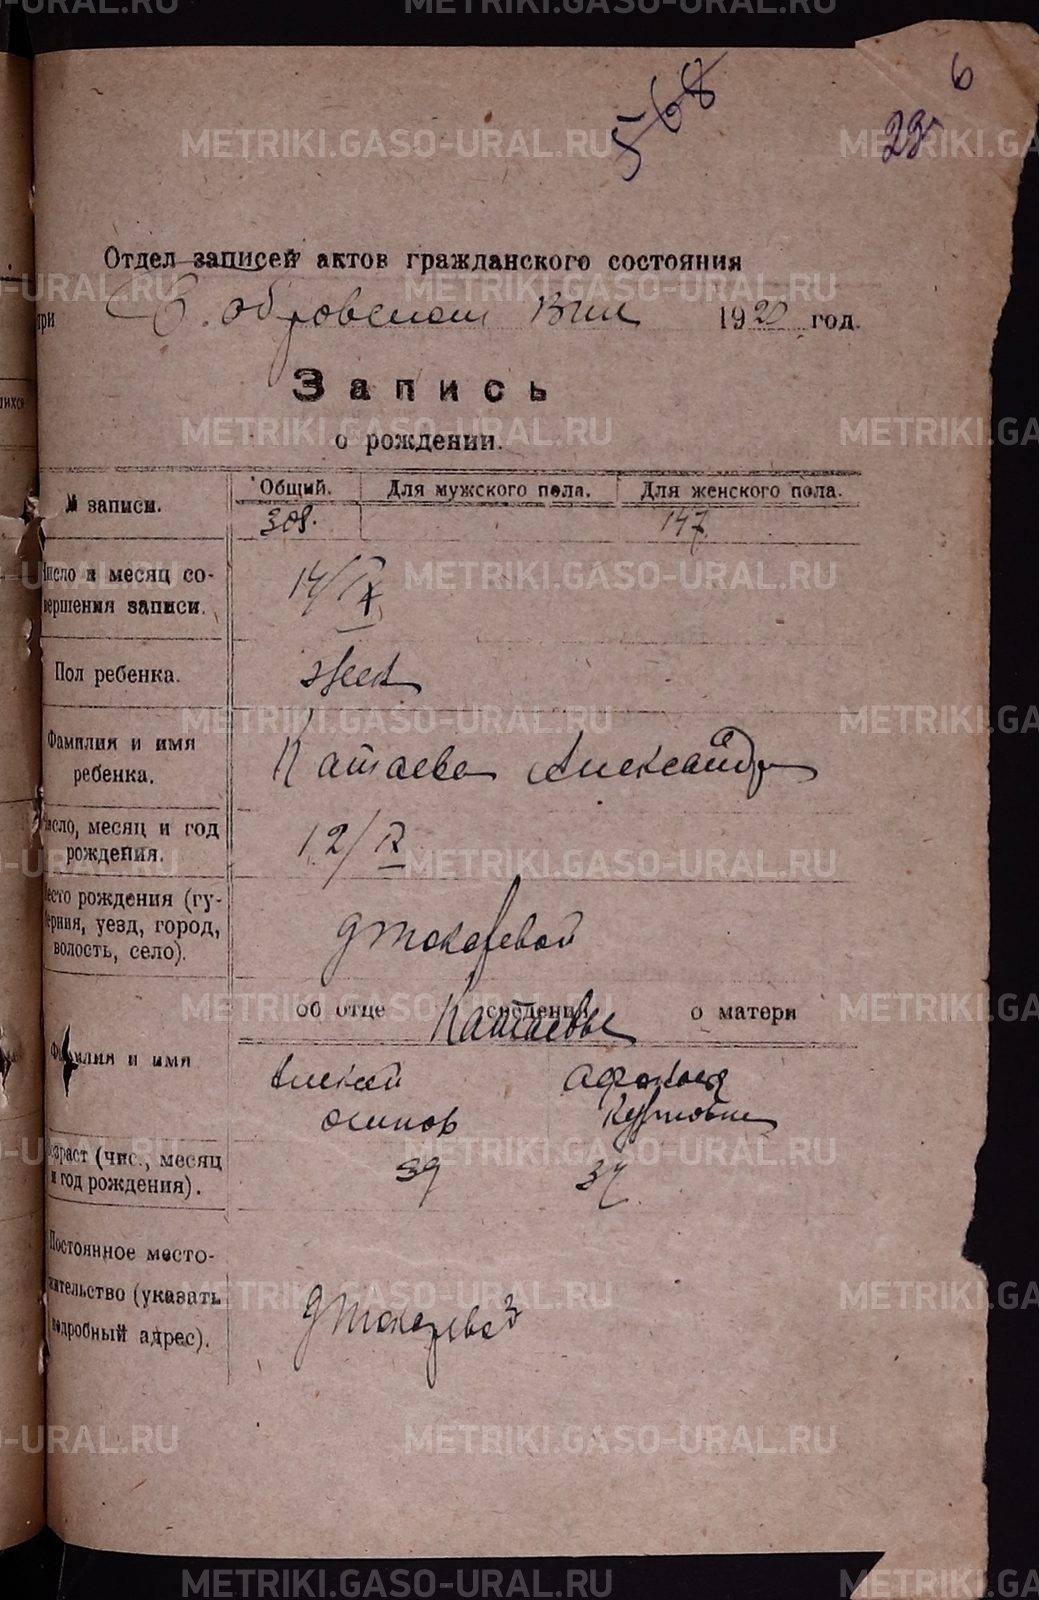 568
6
Отдел записей актов гражданского состояния
при
1920 год.
Запись
о рождении.
№ записи.
Общий.
Для мужского пола.
Для женского пола.
308.
147
Число и месяц со-
вершения записи.
14/IX
Пол ребенка.
жен
Фамилия и имя
ребенка.
Катаева Александра
Число, месяц и год
рождения.
12/IX
Место рождения (гу-
берния, уезд, город,
волость, село).
д Токаревой
об отце
сведения
о матери
Катаевы
Фамилия и имя
Алексей
Осипов
Возраст (чис., месяц
и год рождения).
39
37
Постоянное место-
жительство (указать
подробный адрес).
д Токаревой
METRIKI.GASO-URAL.RU